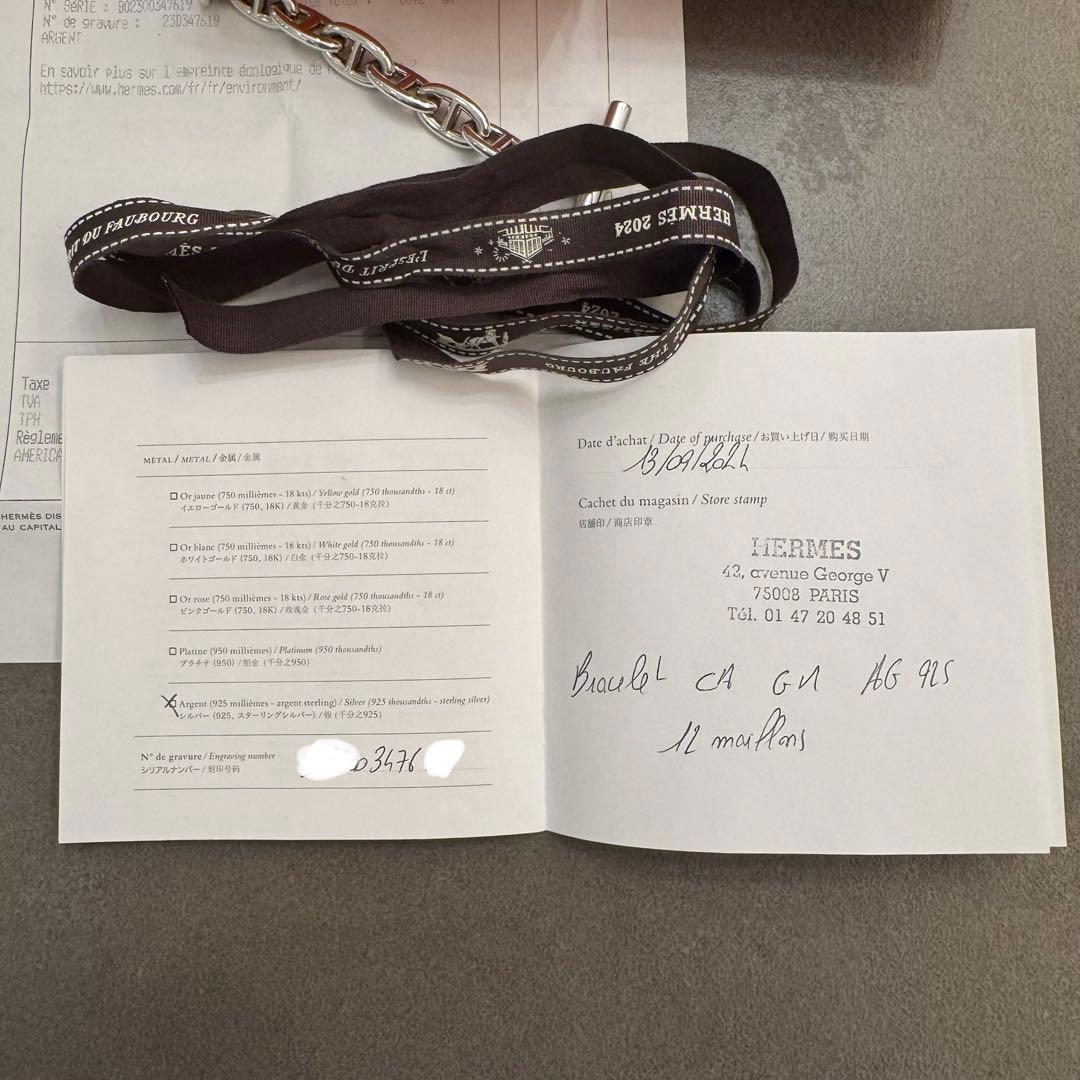 N° SÉRIE : B02300347619
N° de gravure : 23D347619
ARGENT
En savoir plus sur l'empreinte écologique de
https://www.hermes.com/fr/fr/environment/
IT DU FAUBOURG
L'ESPRIT DU
HERMÈS 2024
2024
THE FAUBOURG
Taxe
TVA
TPH
Règleme
AMERICA
HERMÈS DIS
AU CAPITAL
MÉTAL / METAL / 金属 / 金属
Or jaune (750 millièmes - 18 kts) / Yellow gold (750 thousandths - 18 ct)
イエローゴールド (750、18K) / 黄金 (千分之750-18克拉)
Or blanc (750 millièmes - 18 kts) / White gold (750 thousandths - 18 ct)
ホワイトゴールド (750、18K) / 白金 (千分之750-18克拉)
Or rose (750 millièmes - 18 kts) / Rose gold (750 thousandths - 18 ct)
ピンクゴールド (750、18K) / 玫瑰金 (千分之750-18克拉)
Platine (950 millièmes) / Platinum (950 thousandths)
プラチナ (950) / 铂金 (千分之950)
Argent (925 millièmes - argent sterling) / Silver (925 thousandths - sterling silver)
シルバー (925、スターリングシルバー) / 银 (千分之925)
N° de gravure / Engraving number
シリアルナンバー / 刻印号码
03476
Date d'achat / Date of purchase / お買い上げ日 / 购买日期
13/09/2024
Cachet du magasin / Store stamp
店舗印 / 商店印章
HERMES
42, avenue George V
75008 PARIS
Tél. 01 47 20 48 51
Bracelet CA GM AG 925
12 maillons